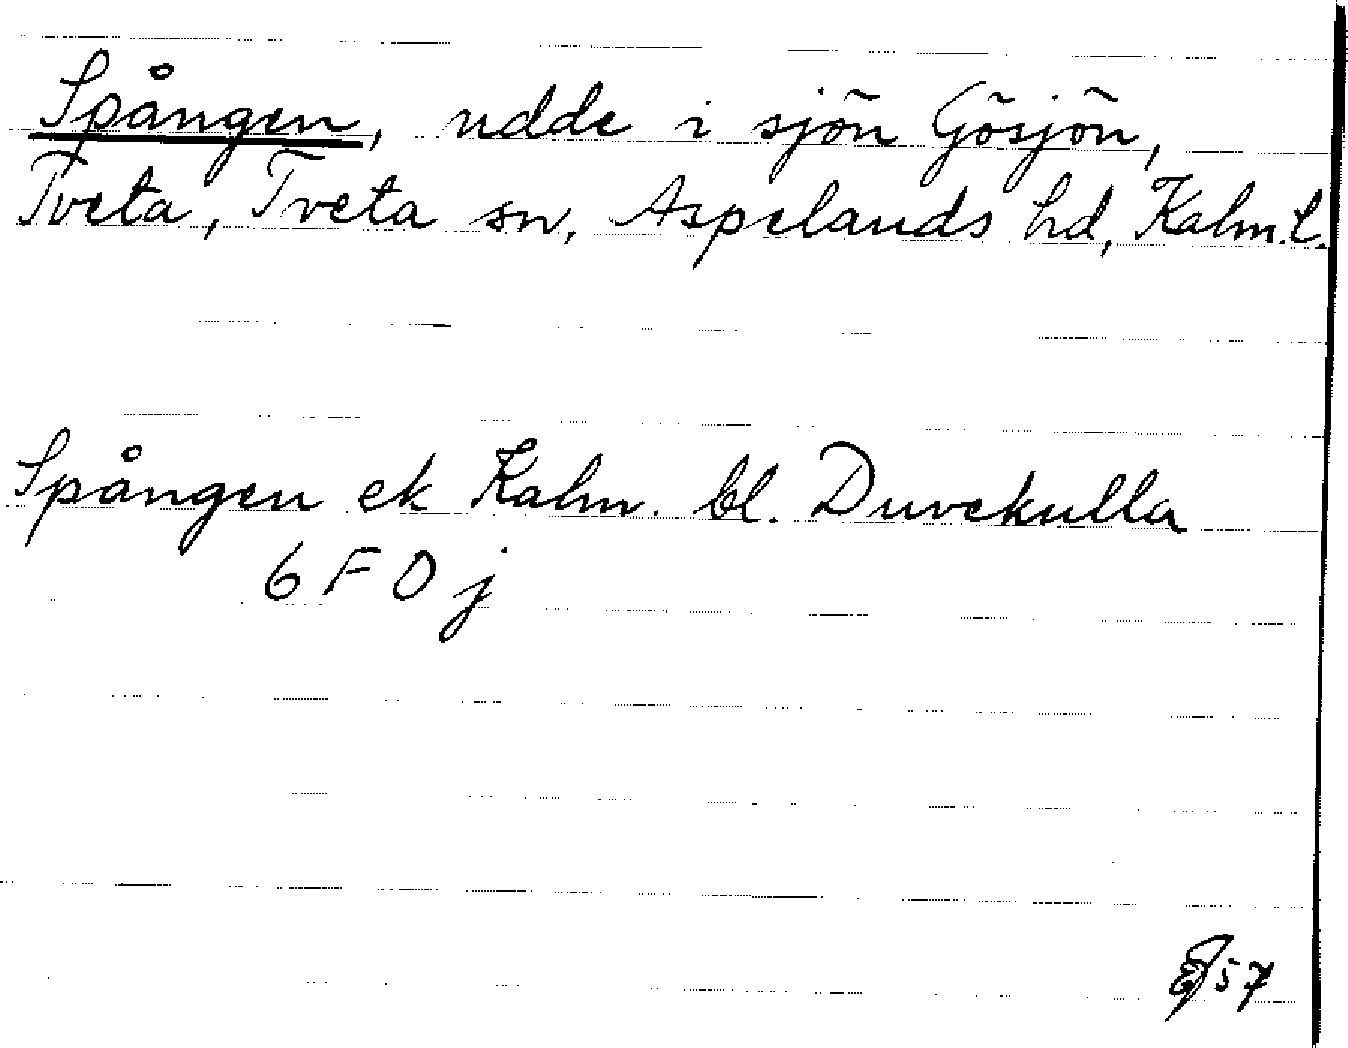 Spången, udde i sjön Gösjön,
Tveta, Tveta sn, Aspelands hd, Kalm.l.
Spången ek Kalm. bl. Duvekulla
6 F 0 j
57